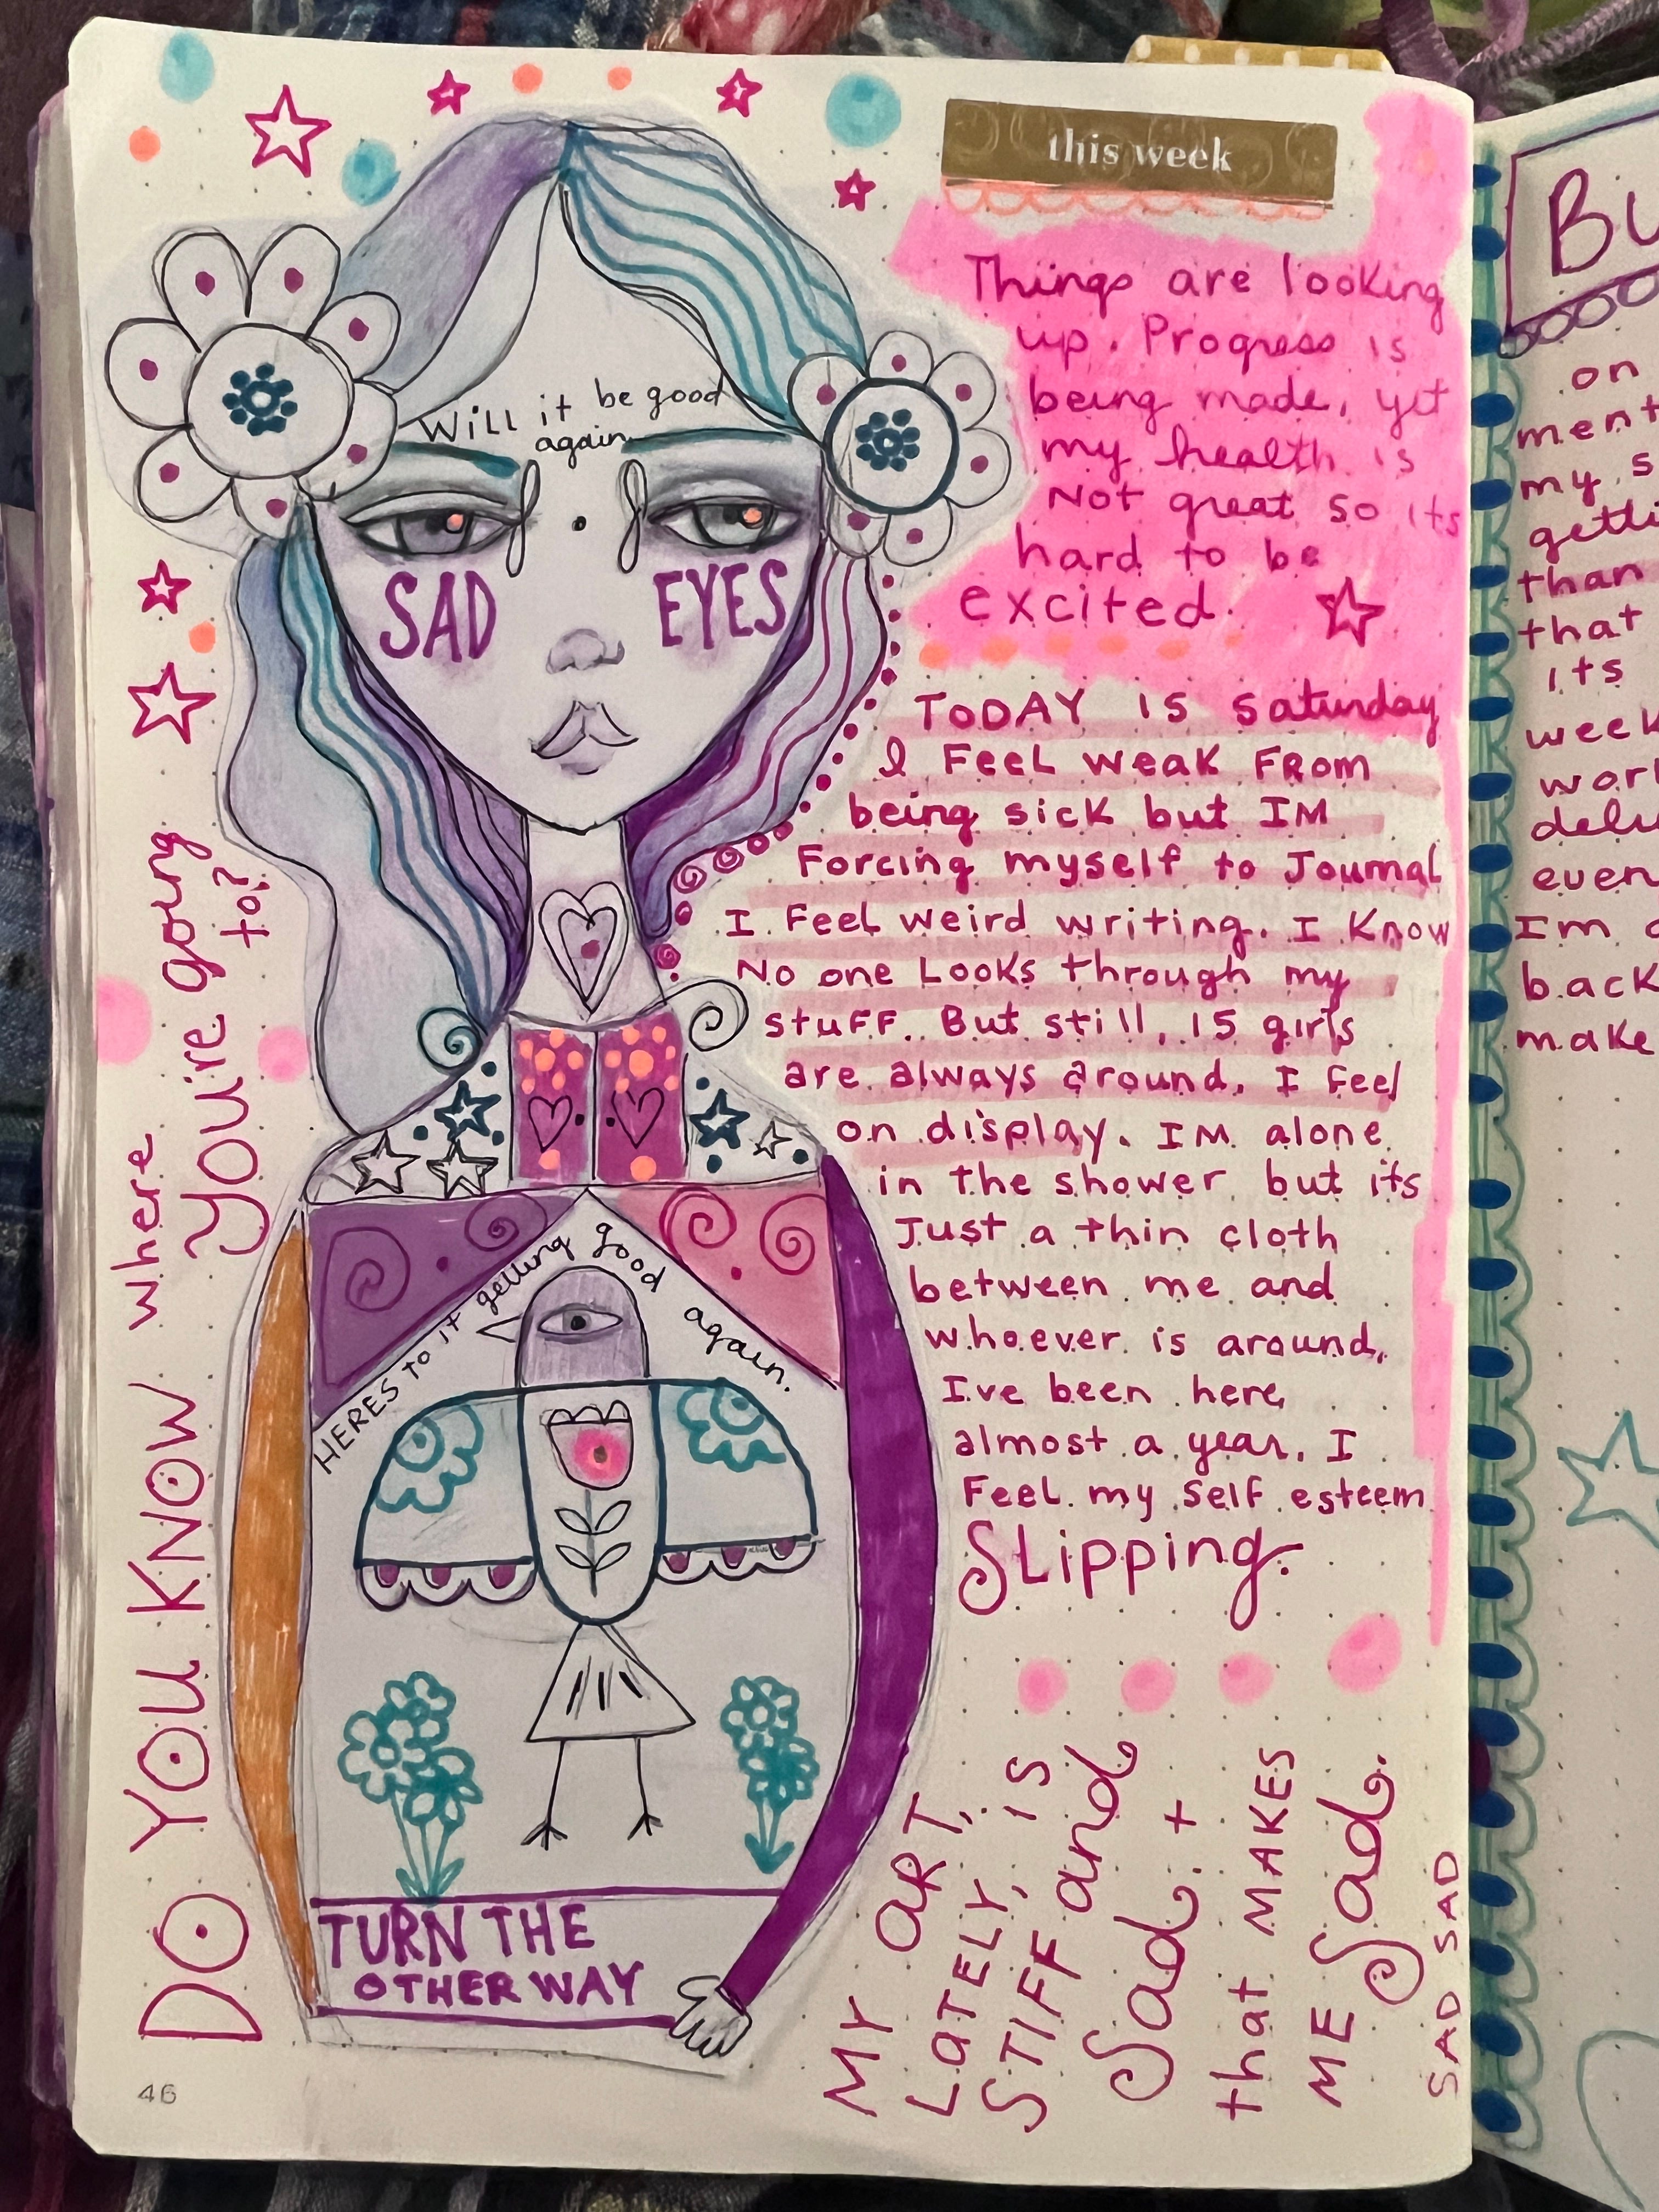 this week
Things are looking
up. Progress is
being made, yet
my health is
Not great so its
hard to be
excited.
TODAY IS Saturday
I FEEL weak FROM
being sick but IM
Forcing myself to Journal
I Feel weird writing. I Know
No one Looks through my
stuFF.. But still, 15 girls
are always around, I Feel
on display. IM alone
in the shower but its
Just a thin cloth
between me and
whoever is around,
I've been here
almost a year, I
Feel my self esteem
SLipping.
MY ART,
LATELY, IS
STIFF and
Sad. +
that MAKES
ME Sad.
SAD SAD
Will it be good
again
SAD EYES
HERES TO it getting good again.
TURN THE
OTHER WAY
DO YOU KNOW where
YOU're going
to?
46
on
my
than
that
its
week
even
Im
back
make